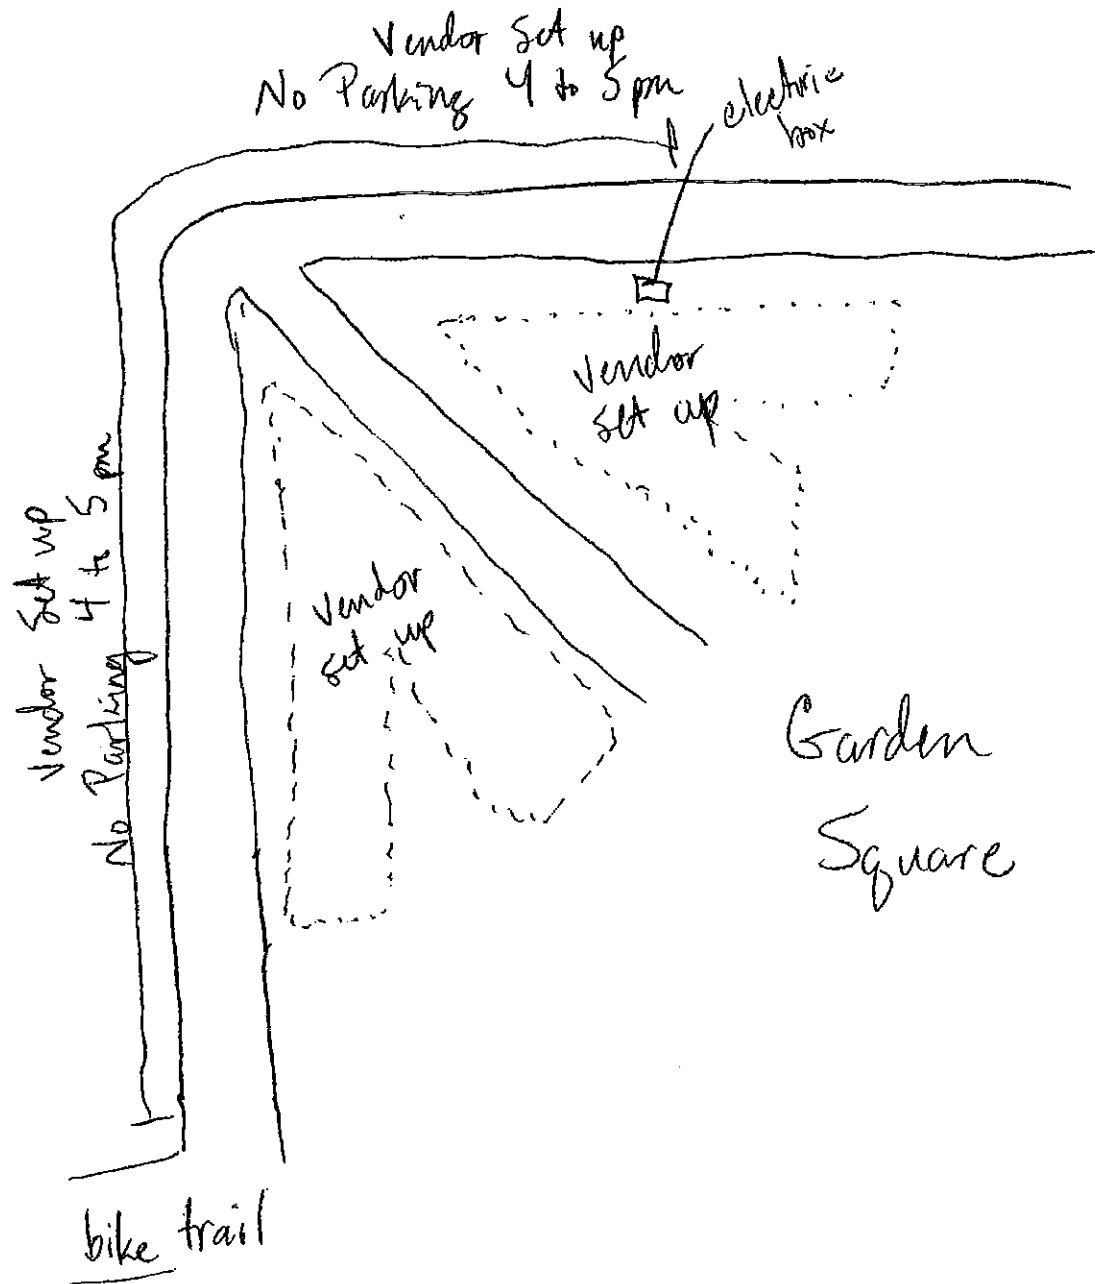 Vendor Set up
No Parking 4 to 5 pm
electric
box
Vendor
set up
Vendor Set up
No Parking 4 to 5 pm
Vendor
set up
Garden
Square
bike trail